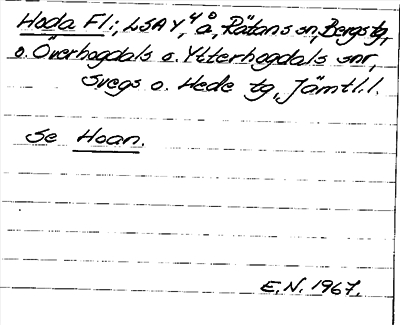 Hoda Fl:, LSA Y, 4 å, Rätans sn, Bergs tg,
o. Överhogdals o. Ytterhogdals snr,
Svegs o. Hede tg, Jämtl. l.
Se Hoan.
E.N. 1967.